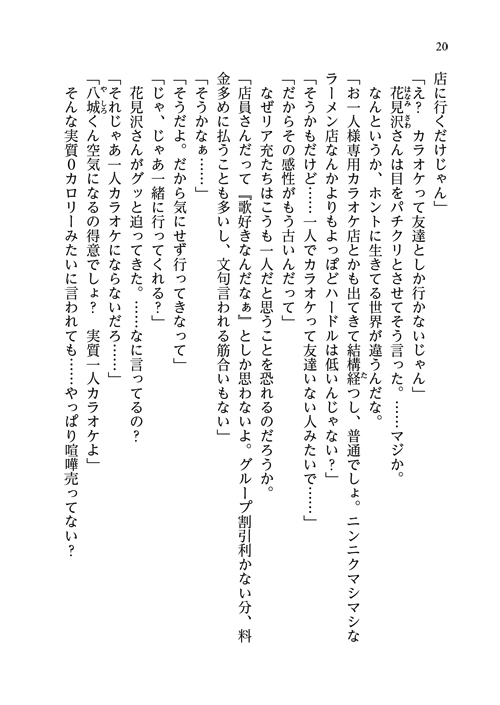 20
店に行くだけじゃん」
「え？　カラオケって友達としか行かないじゃん」
　花見沢さんは目をパチクリとさせてそう言った。……マジか。
はなみ ざわ
　なんというか、ホントに生きてる世界が違うんだな。
「お一人様専用カラオケ店とかも出てきて結構経つし、普通でしょ。ニンニクマシマシな
た
ラーメン店なんかよりもよっぽどハードルは低いんじゃない？」
「そうかもだけど……一人でカラオケって友達いない人みたいで……」
「だからその感性がもう古いんだって」
　なぜリア充たちはこうも一人だと思うことを恐れるのだろうか。
「店員さんだって『歌好きなんだなぁ』としか思わないよ。グループ割引利かない分、料
金多めに払うことも多いし、文句言われる筋合いもない」
「そうかなぁ……」
「そうだよ。だから気にせず行ってきなって」
「じゃ、じゃあ一緒に行ってくれる？」
　花見沢さんがグッと迫ってきた。……なに言ってるの？
「それじゃあ一人カラオケにならないだろ……」
「八城くん空気になるの得意でしょ？　実質一人カラオケよ」
や しろ
　そんな実質０カロリーみたいに言われても……やっぱり喧嘩売ってない？